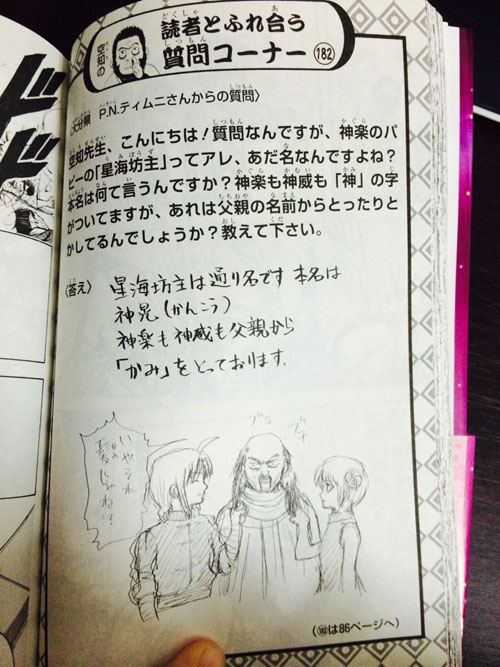 空知の
読者とふれ合う
質問コーナー
182
P.N.ティムニさんからの質問〉
空知先生、こんにちは!質問なんですが、神楽のパ
ピーの「星海坊主」ってアレ、あだ名なんですよね?
本名は何て言うんですか?神楽も神威も「神」の字
がついてますが、あれは父親の名前からとったりと
かしてるんでしょうか?教えて下さい。
〈答え〉
星海坊主は通り名です 本名は
神晃(かんこう)
神楽も神威も父親から
「かみ」をとっております。
ブチ
ブチ
いやそれ
髪じゃね!?
(183は86ページへ)